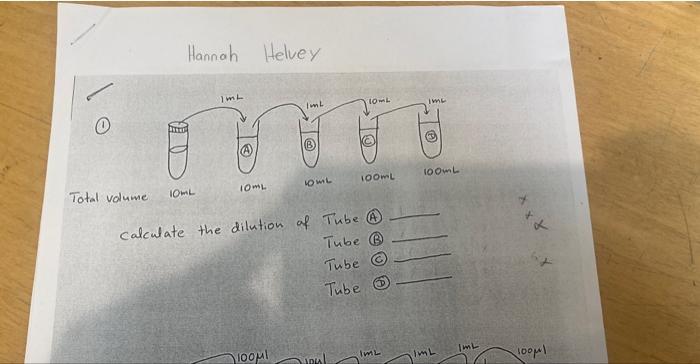 Hannah Helvey
1mL 1mL 10mL 1mL
① Ⓐ Ⓑ Ⓒ Ⓓ
Total volume 10mL 10mL 10mL 100mL 100mL
Calculate the dilution of Tube Ⓐ
Tube Ⓑ
Tube Ⓒ
Tube Ⓓ
100μl 10μl 1mL 1mL 1mL 100μl